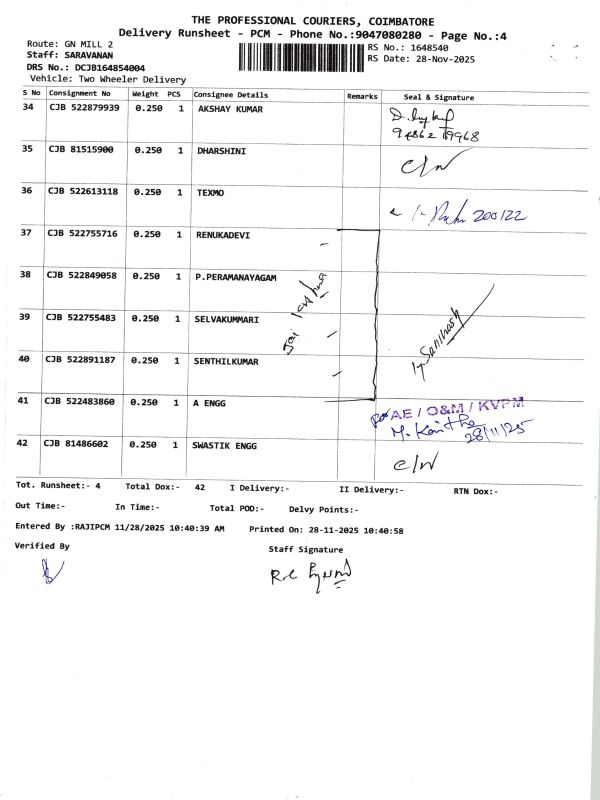 THE PROFESSIONAL COURIERS, COIMBATORE
Delivery Runsheet - PCM - Phone No.:9047080280 - Page No.:4
Route: GN MILL 2
RS No.: 1648540
Staff: SARAVANAN
RS Date: 28-Nov-2025
DRS No.: DCJB164854004
Vehicle: Two Wheeler Delivery
S No Consignment No Weight PCS Consignee Details Remarks Seal & Signature
34 CJB 522879939 0.250 1 AKSHAY KUMAR
35 CJB 81515900 0.250 1 DHARSHINI
C/W
36 CJB 522613118 0.250 1 TEXMO
200122
37 CJB 522755716 0.250 1 RENUKADEVI
38 CJB 522849058 0.250 1 P.PERAMANAYAGAM
Jai Krishna
39 CJB 522755483 0.250 1 SELVAKUMMARI
Santhosh
40 CJB 522891187 0.250 1 SENTHILKUMAR
41 CJB 522483860 0.250 1 A ENGG
AE / O&M / KVPM
28/11/25
42 CJB 81486602 0.250 1 SWASTIK ENGG
C/W
Tot. Runsheet:- 4 Total Dox:- 42 I Delivery:- II Delivery:- RTN Dox:-
Out Time:- In Time:- Total POD:- Delvy Points:-
Entered By :RAJIPCM 11/28/2025 10:40:39 AM Printed On: 28-11-2025 10:40:58
Verified By
Staff Signature